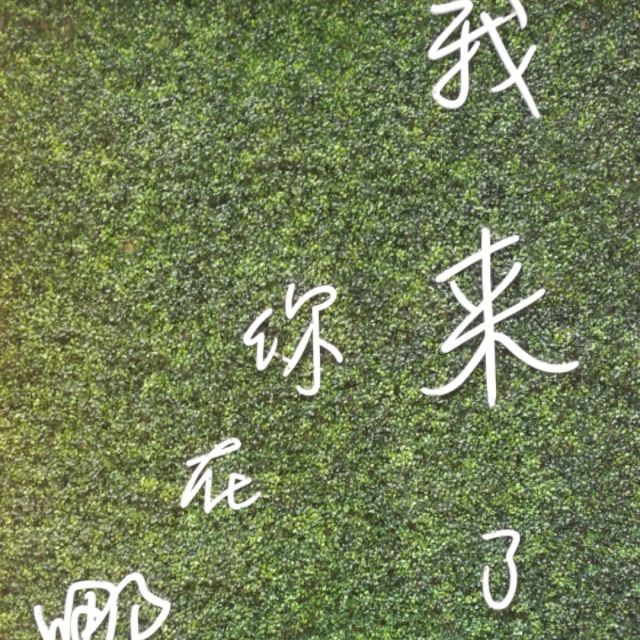 我来了
你在哪